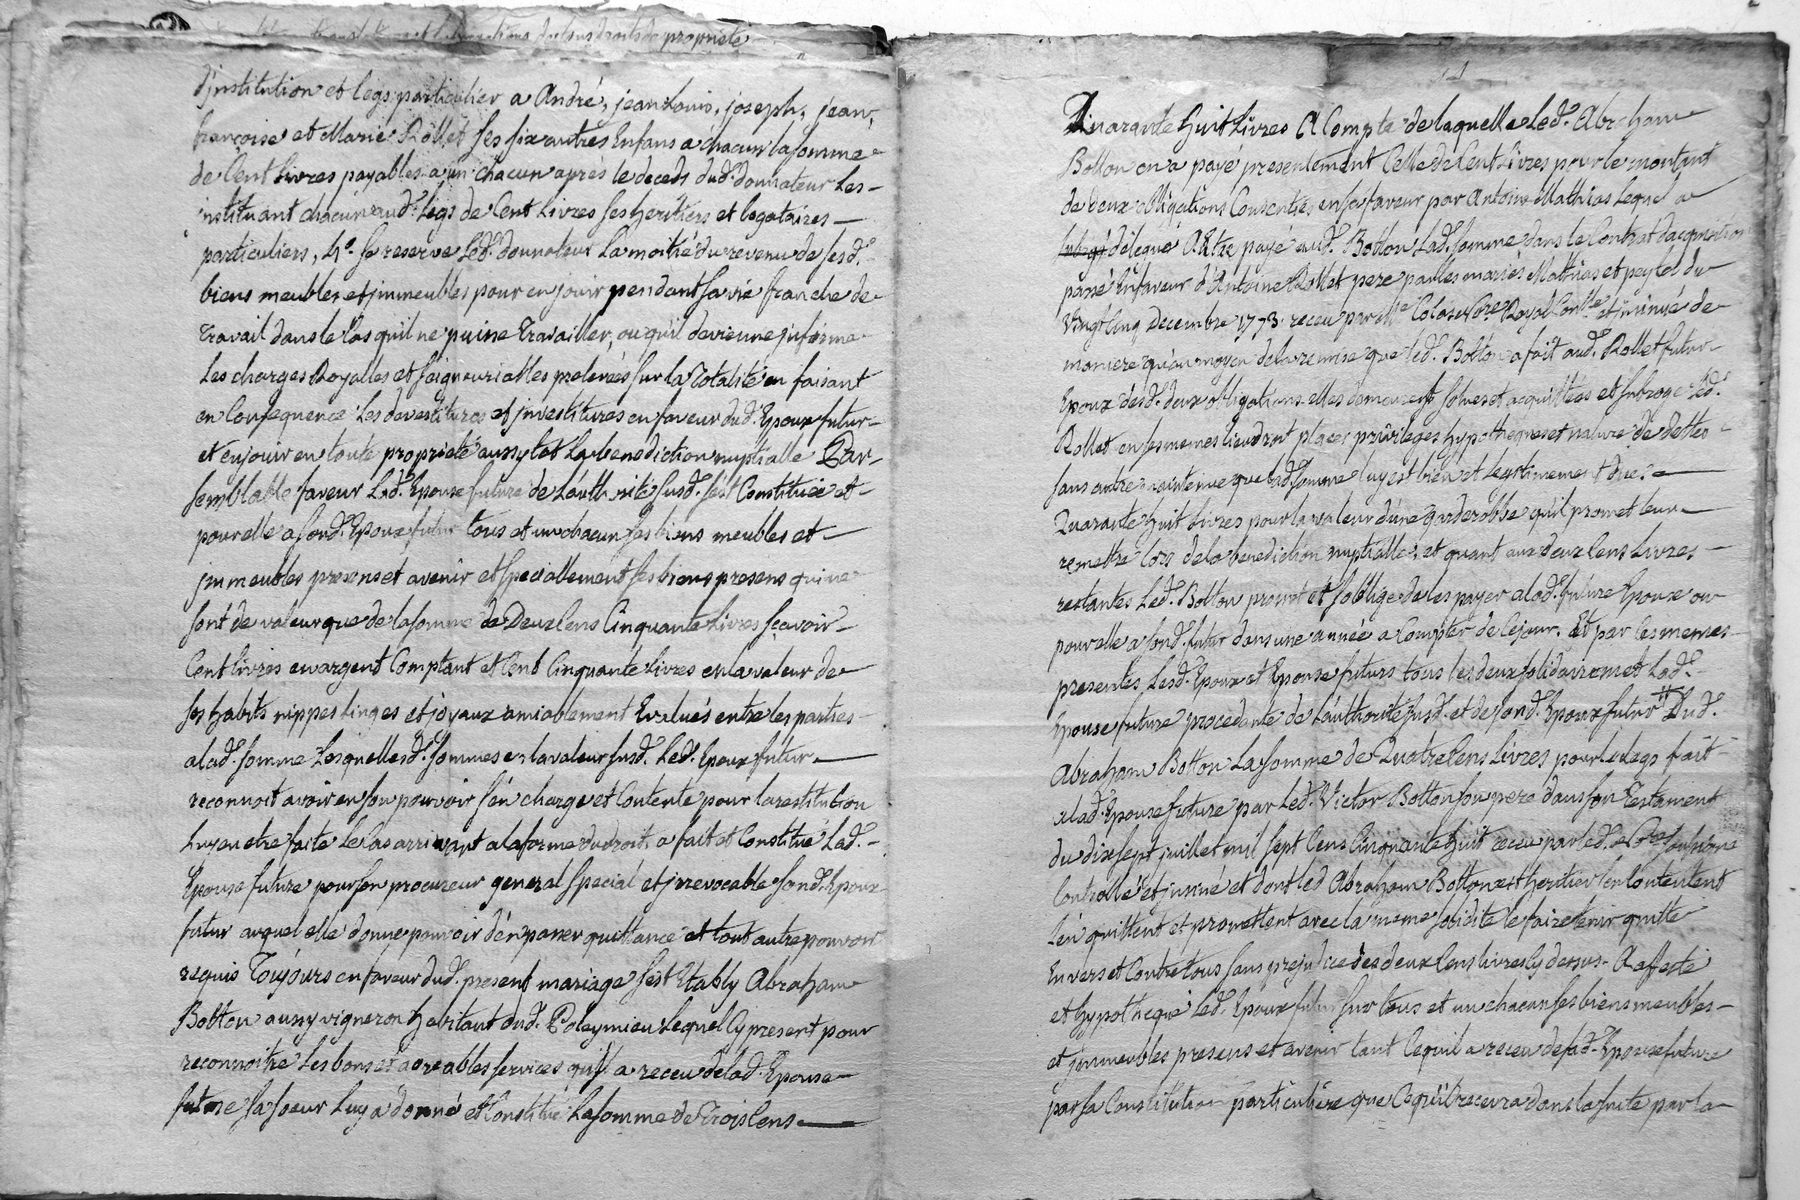 de propriété
d'jnstitution et legs particulier a André, jean Louis, joseph, jean,
francoise et Marie Rollet ses six autres Enfans a chacun la somme
de Cent Livres payables a un chacun aprés le deceds dud. donnateur Les
jnstituant chacun aud. Legs de Cent Livres ses heritiers et legataires
particuliers, 4°. se reserve Led. donnateur La moitié du revenu de sesd.
biens meubles et jmmeubles pour en jouir pendant sa vie franche de
travail dans le Cas quil ne puisse travailler, ou quil devienne jnfirme
Les charges Royalles et seigneurialles prelevées sur la Totalité en faisant
en Consequence Les devestitures et jnvestitures en faveur dud. Epoux futur
et en jouir en toute propriété aussytot La benediction nuptialle Par
semblable faveur Lad. Epouse future de L'auth rité susd. s'est Constituée et
pour elle a sond. Epoux futur tous et un chacun ses biens meubles et
jmmeubles presens et avenir et speciallement ses biens presens qui ne
sont de valeur que de la somme de Deux Cens Cinquante Livres sçavoir
Cent livres en argent Comptant et Cent Cinquante Livres en la valeur de
ses habits nippes Linges et joyaux amiablement Evalués entre les parties
a lad. somme Lesquelles d. sommes et la valeur susd. Led. Epoux futur
reconnoit avoir en son pouvoir s'en charge et Contente pour la restitution
Luy en etre faite Le Cas arrivant a la forme du droit, a fait et Constitué Lad.
Epouse future pour son procureur general special et jrrevocable sond. Epoux
futur auquel elle donne pouvoir d'en passer quittance et tout autre pouvoir
requis Toujours en faveur dud. present mariage s'est Etably Abraham
Botton aussy vigneron habitant aud. Poleymieu Lequel Cy present pour
reconnoitre Les bons et agreables services quil a receu de lad. Epouse
future sa soeur Luy a donné et Constitué La somme de Trois Cens
Quarante huit Livres A Compte de laquelle Led. Abraham
Botton en a payé presentement Celle de Cent Livres pour le montant
de deux obligations Consenties en sa faveur par Antoine Mathias Lequel a
delegué A Etre payé aud. Botton Lad. somme dans le Contrat d'acquisition
passé En faveur d'Antoine Rollet pere par les mariés Mathias et peytel du
Vingt Cinq Decembre 1773. receu par Me Royal Conlle et jnsinué de
maniere qu'au moyen de la remise que led. Botton a fait aud. Rollet futur
Epoux desd. deux obligations elles demeurent solues et acquittées et subroge Led.
Rollet en ses memes Lieu droit places privileges hypotheques et nature de dettes
sans autre maintenue que lad. somme luy est bien et Legitimement due:
Quarante huit Livres pour la valeur d'une garderobbe quil promet leur
remettre Lors de la benediction nuptialle; et quant aux deux Cens Livres
restantes Led. Botton promet et s'oblige de les payer a lad. future Epouse ou
pour elle a sond. futur dans une année a Compter de Ce jour. Et par les memes
presentes Lesd. Epoux et Epouse futurs tous les deux solidairemet Lad.
Epouse future procedante de L'authorité susd. et de sond. Epoux futur # Dud.
Abraham Botton La somme de Quatre Cens Livres pour le Legs fait
a lad. Epouse future par Led. Victor Botton son pere dans son Testament
du dix sept juillet mil sept Cens Cinquante huit receu par led. Nore soussigné
Controllé et jnsiné et dont led Abraham Botton est heritier s'en Contentent
L'en quittent et promettent avec la meme solidité le faire tenir quitte
Envers et Contre tous sans prejudice des deux Cens livres Cy dessus. A affecté
et hypothequé Led. Epoux futur sur tous et un chacun ses biens meubles
et jmmeubles presens et avenir tant Ce quil a receu de sad. Epouse future
par sa Constitution particuliere que Ce quil recevra dans la suite par la